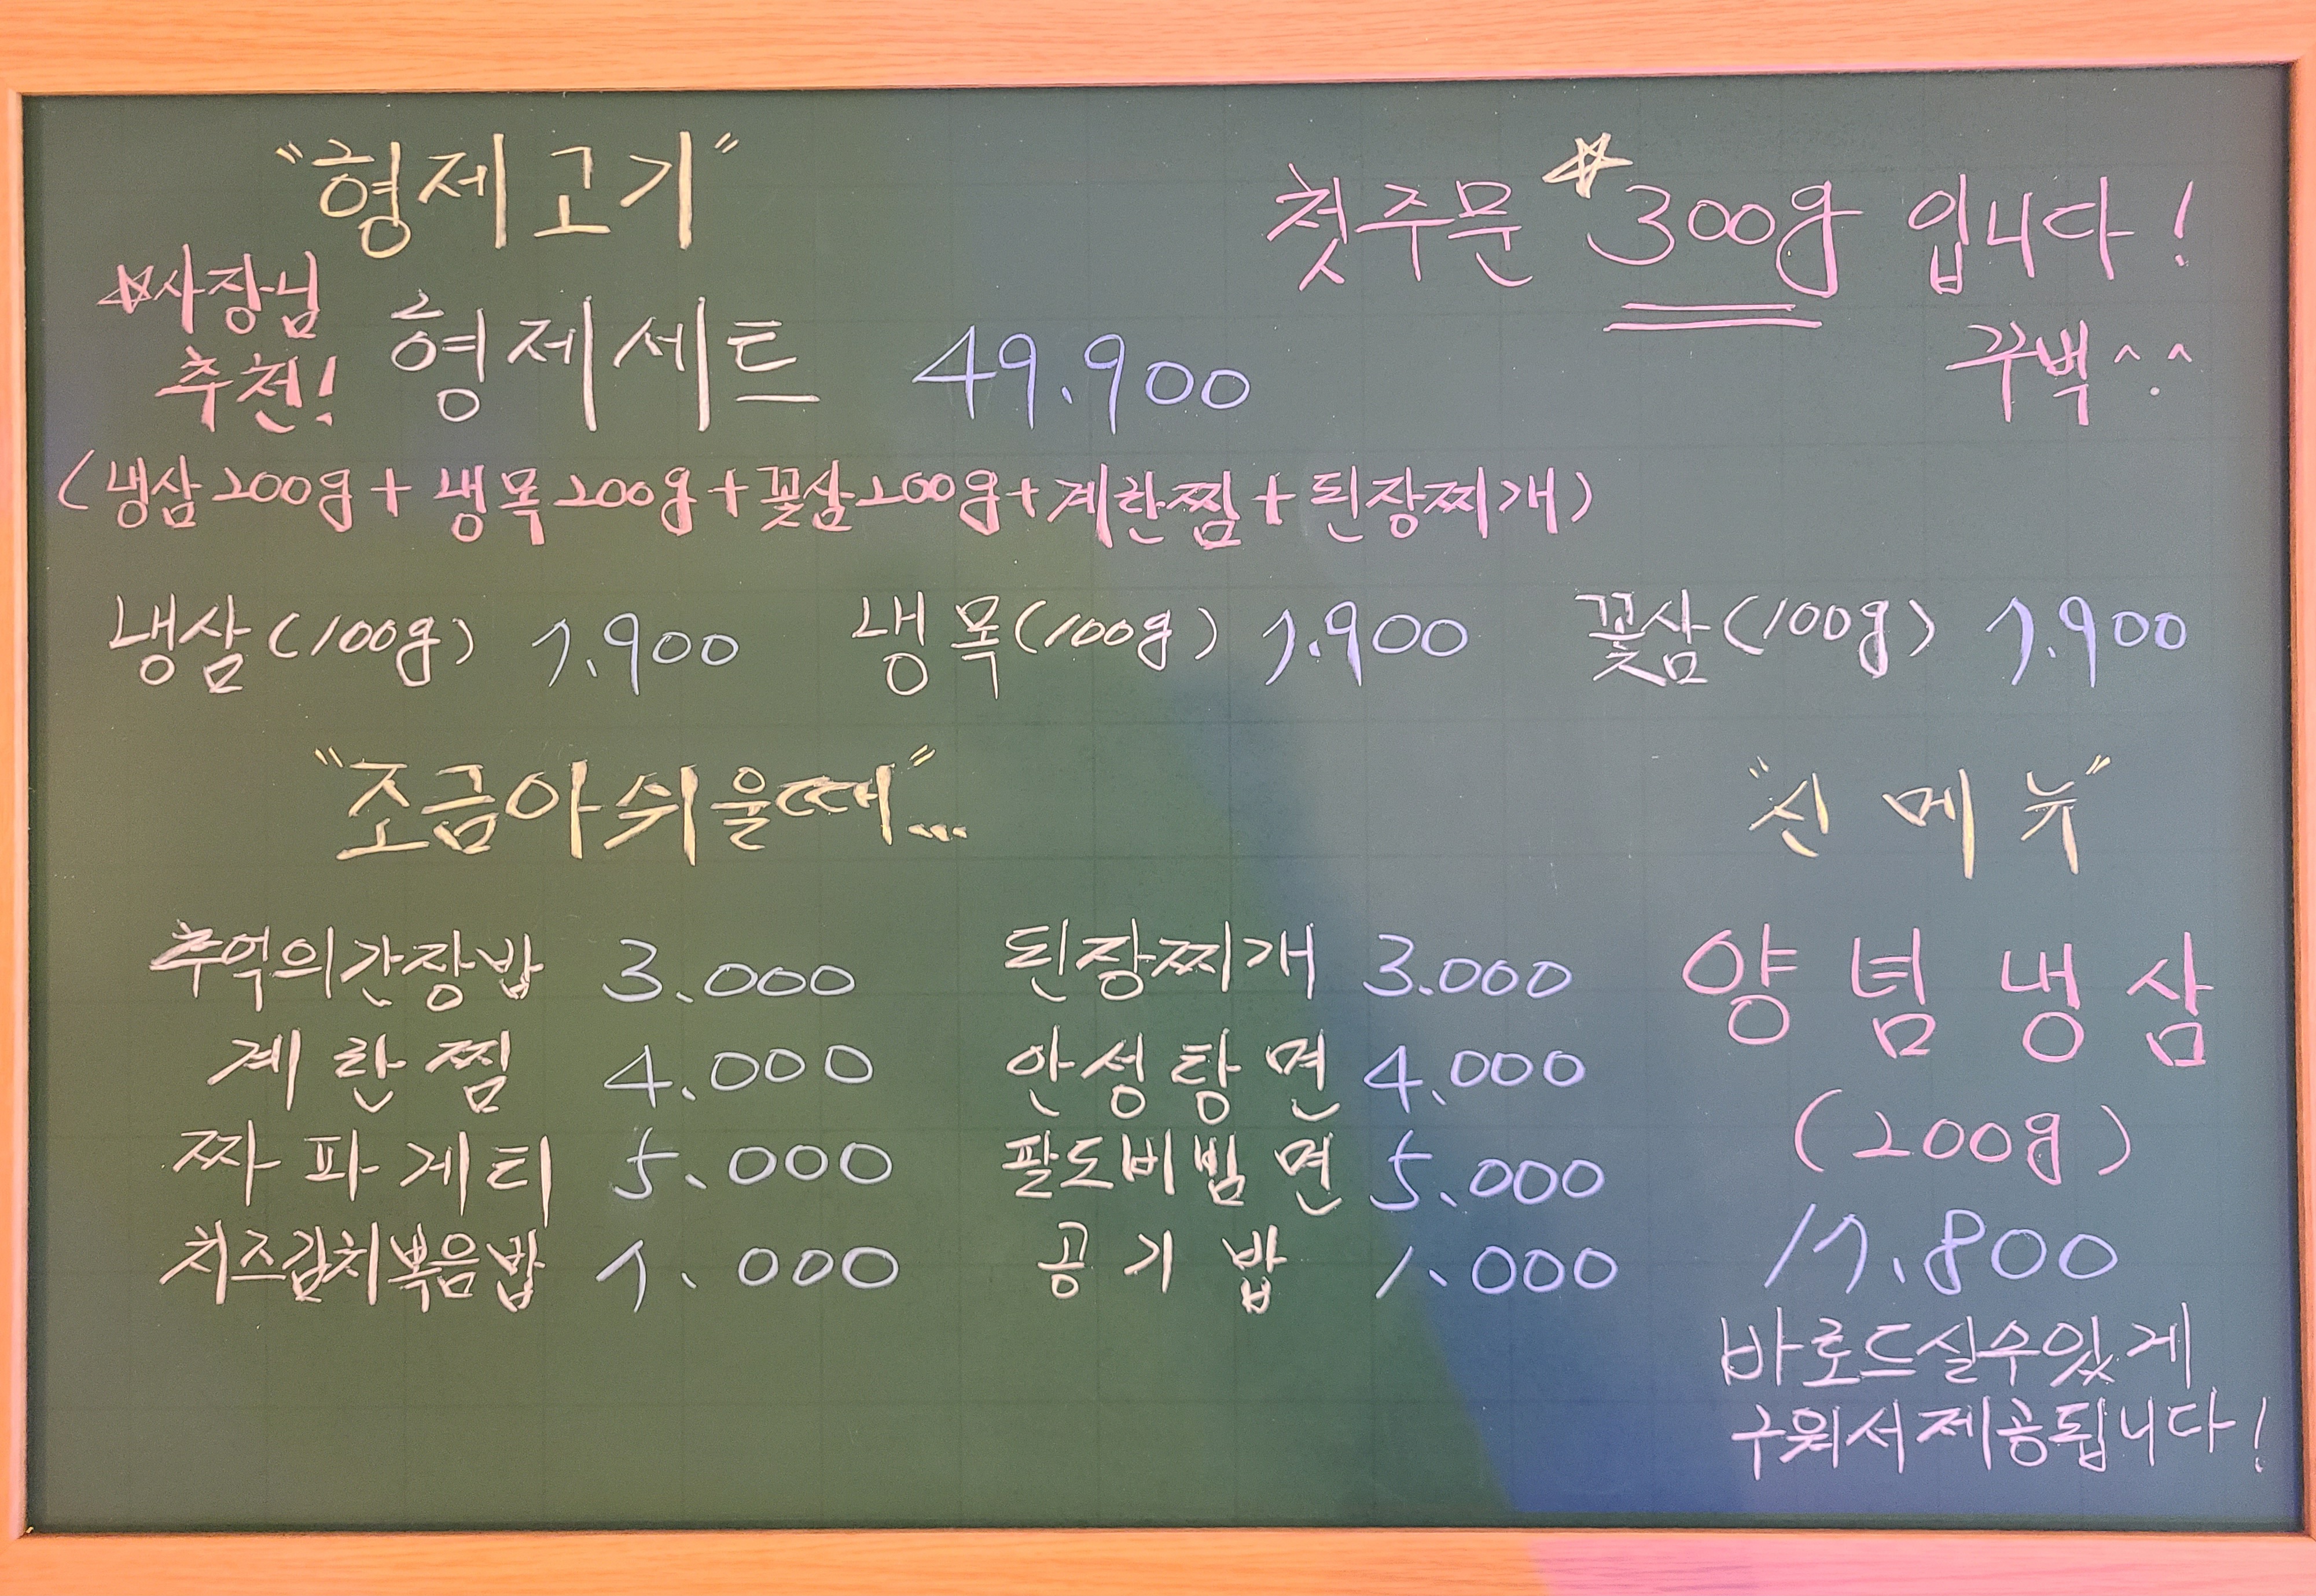 "형제고기"
첫주문 ☆300g 입니다!
꾸벅^.^
☆사장님
추천!
형제세트 49.900
(냉삼200g+냉목200g+꽃삼200g+계란찜+된장찌개)
냉삼(100g) 7.900 냉목(100g) 7.900 꽃삼(100g) 7.900
"조금아쉬울때"...
추억의간장밥 3.000 된장찌개 3.000
계란찜 4.000 안성탕면 4.000
짜파게티 5.000 팔도비빔면 5.000
치즈김치볶음밥 7.000 공기밥 1.000
"신메뉴"
양념냉삼
(200g)
17.800
바로드실수있게
구워서제공됩니다!